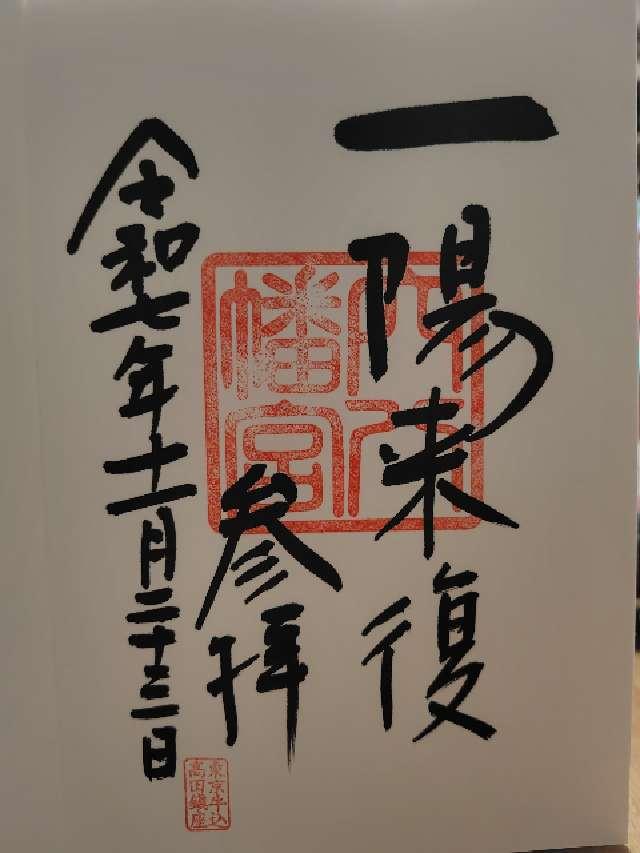 一陽来復
穴八
幡宮
参拝
令和七年十一月二十三日
東京牛込
高田鎮座